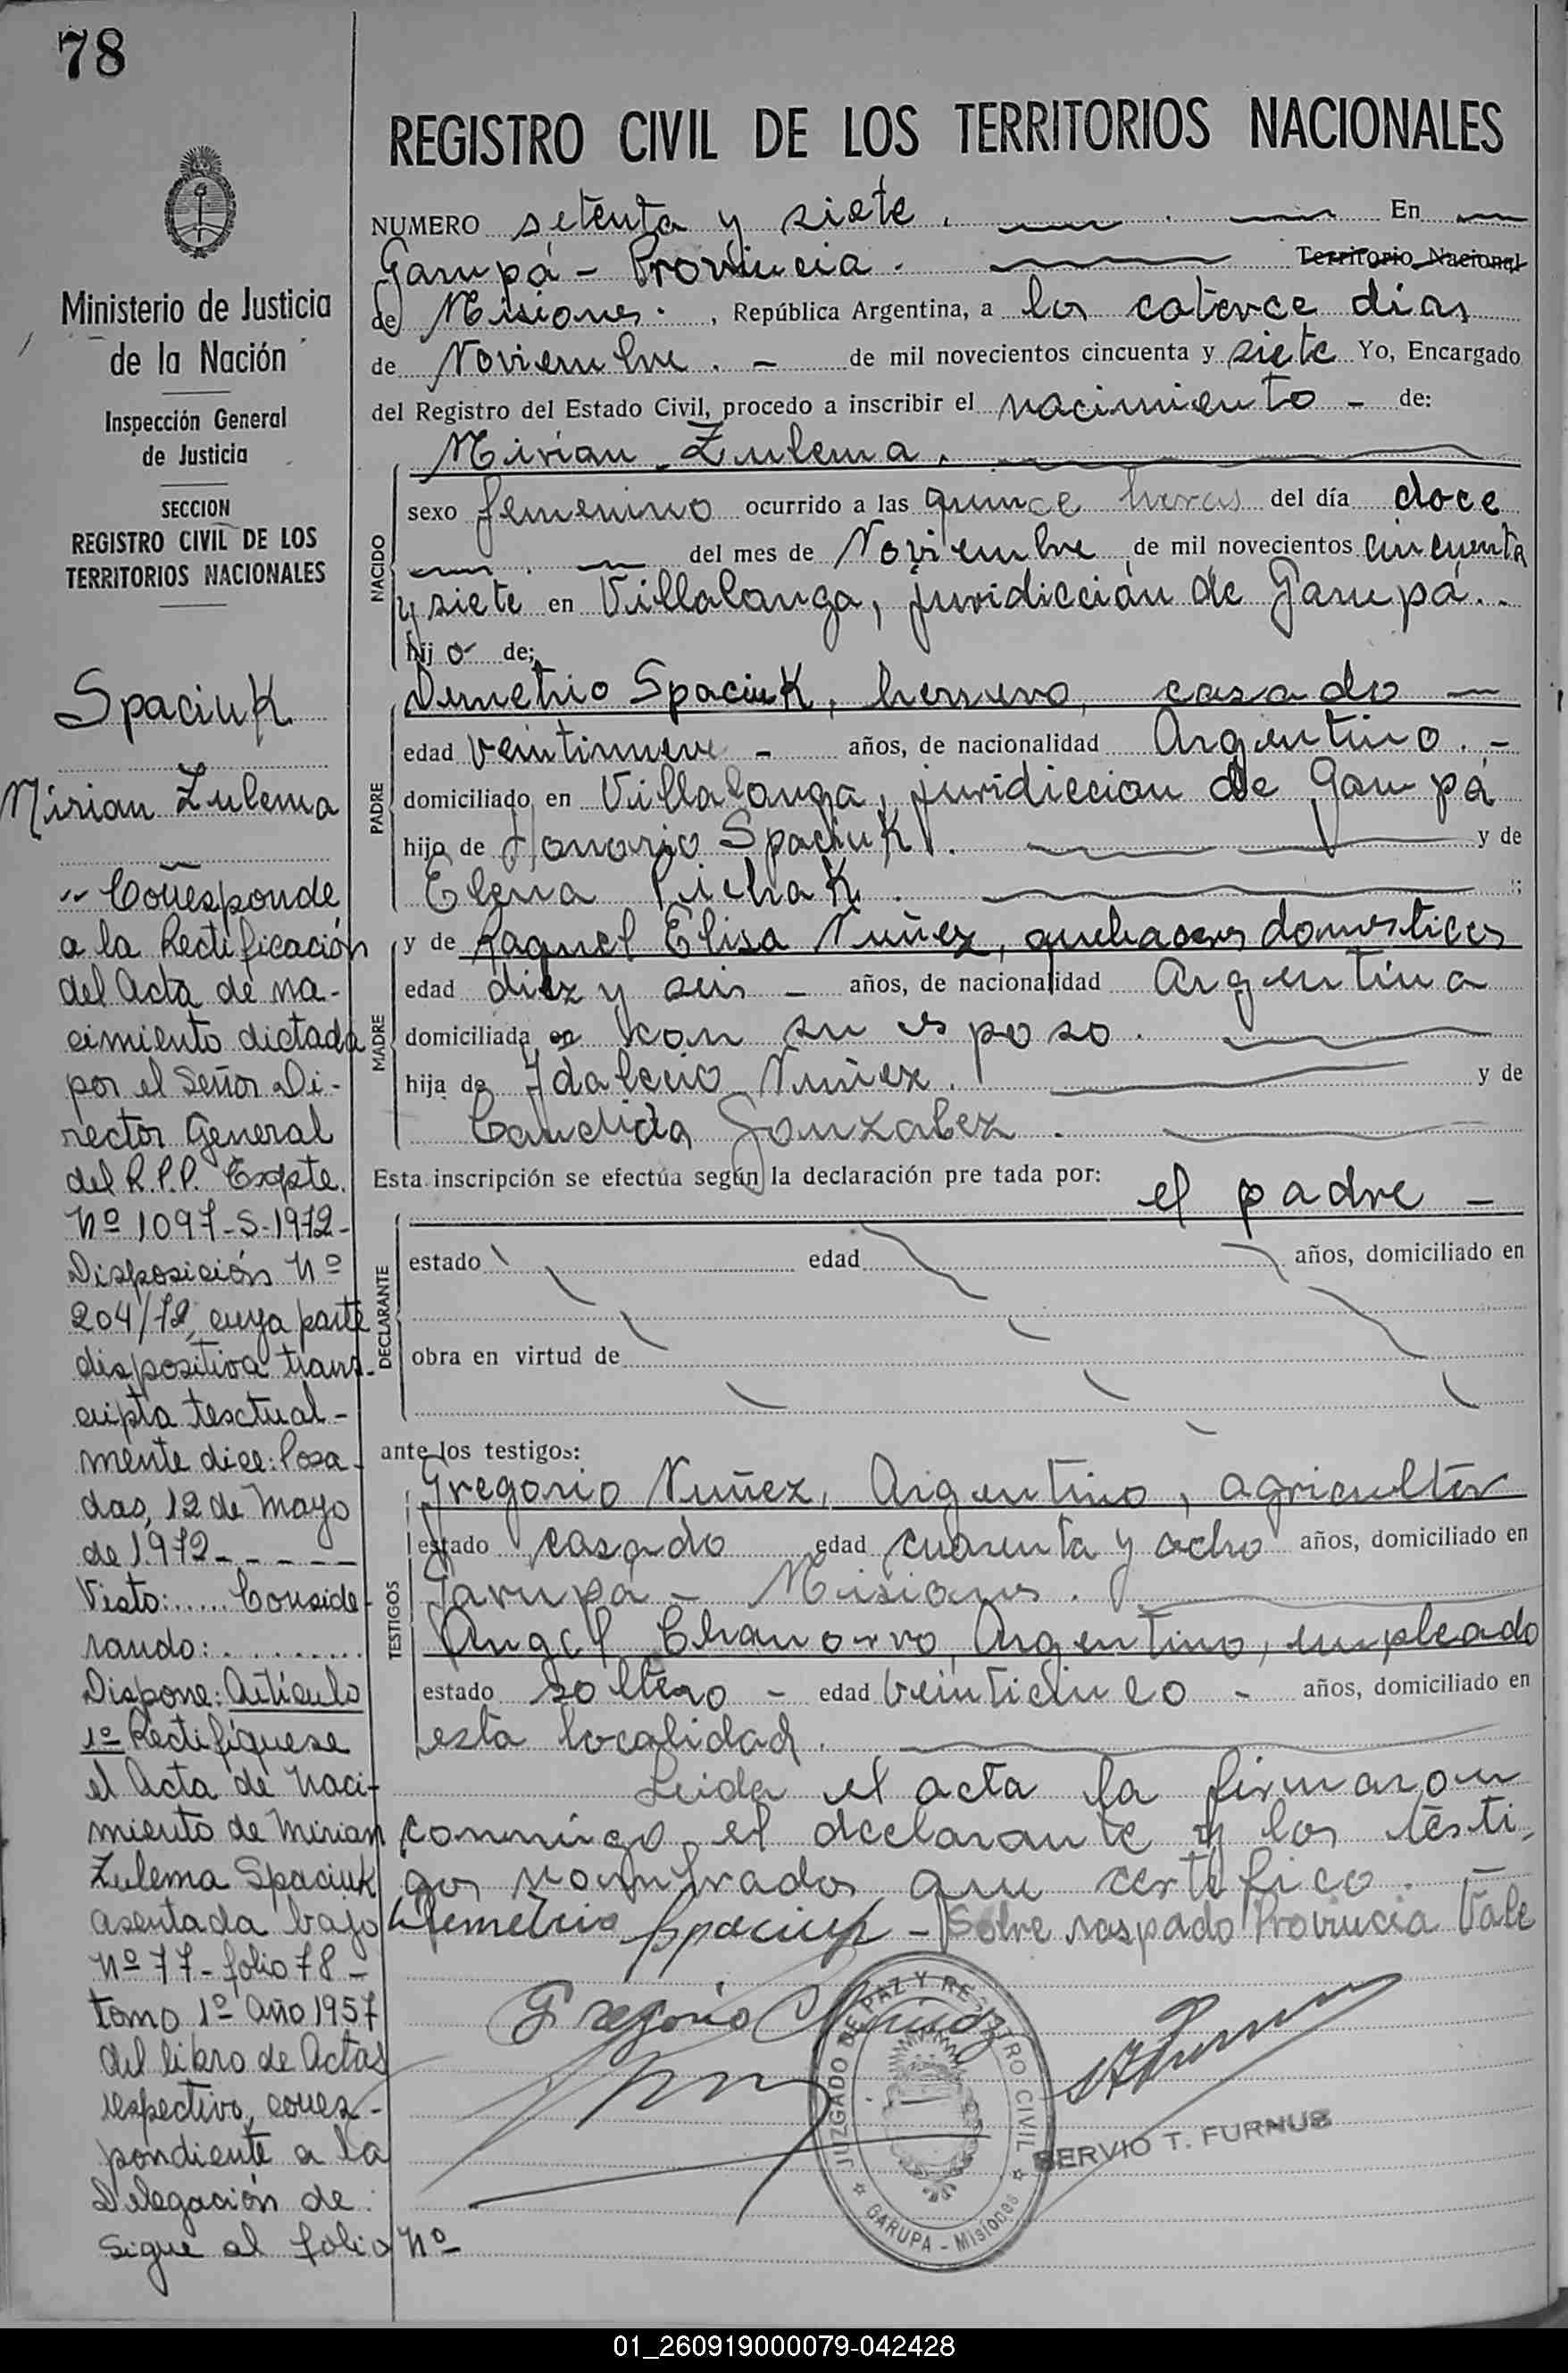 78
REGISTRO CIVIL DE LOS TERRITORIOS NACIONALES
NUMERO setenta y siete. En
Garupá - Provincia. Territorio Nacional
de Misiones. , República Argentina, a los catorce días
de Noviembre. - de mil novecientos cincuenta y siete Yo, Encargado
del Registro del Estado Civil, procedo a inscribir el nacimiento - de:
Mirian Zulema.
NACIDO
sexo femenino ocurrido a las quince horas del día doce
del mes de Noviembre de mil novecientos cincuenta
y siete en Villalonga, juridicción de Garupá. -
hij a de;
PADRE
Demetrio Spaciuk, herrero, casado -
edad veintinueve - años, de nacionalidad Argentino. -
domiciliado en Villalonga, juridiccion de Garupá
hijo de Honorio Spaciuk. y de
Elena Pichak. ;
MADRE
y de Raquel Elisa Nuñez, quehaceres domesticos
edad diez y seis - años, de nacionalidad Argentina
domiciliada en con su esposo.
hija de Idalecio Nuñez. y de
Candida Gonzalez.
Esta inscripción se efectúa según la declaración pre tada por: el padre -
DECLARANTE
estado edad años, domiciliado en
obra en virtud de
ante los testigos:
TESTIGOS
Gregorio Nuñez, Argentino, agricultor
estado casado edad cuarenta y ocho años, domiciliado en
Garupá - Misiones.
Angel Chamorro, Argentino, empleado
estado soltero - edad veinticinco - años, domiciliado en
esta localidad.
Leida el acta la firmaron
conmigo el declarante y los testi-
gos nombrados que certifico. -
Demetrio Spaciuk - Sobre raspado Provincia Vale
Gregorio Nuñez
JUZGADO DE PAZ Y REGISTRO CIVIL
GARUPA - Misiones
SERVIO T. FURNUS
Ministerio de Justicia
de la Nación
Inspección General
de Justicia
SECCION
REGISTRO CIVIL DE LOS
TERRITORIOS NACIONALES
Spaciuk
Mirian Zulema
Corresponde
a la Rectificación
del Acta de na-
cimiento dictada
por el Señor Di-
rector General
del R.P.P. Expte.
Nº 1097-S-1972-
Disposición Nº
204/72, cuya parte
dispositiva trans-
cripta tesctual-
mente dice: Posa-
das, 12 de Mayo
de 1972 - - - - -
Visto:..... Conside-
rando:..........
Dispone: Artículo
1º Rectifíquese
el Acta de Naci-
miento de Mirian
Zulema Spaciuk
asentada bajo
Nº 77 - folio 78 -
tomo 1º Año 1957
del libro de Actas
respectivo, corres-
pondiente a la
Delegación de
Sigue al folio Nº
01_260919000079-042428